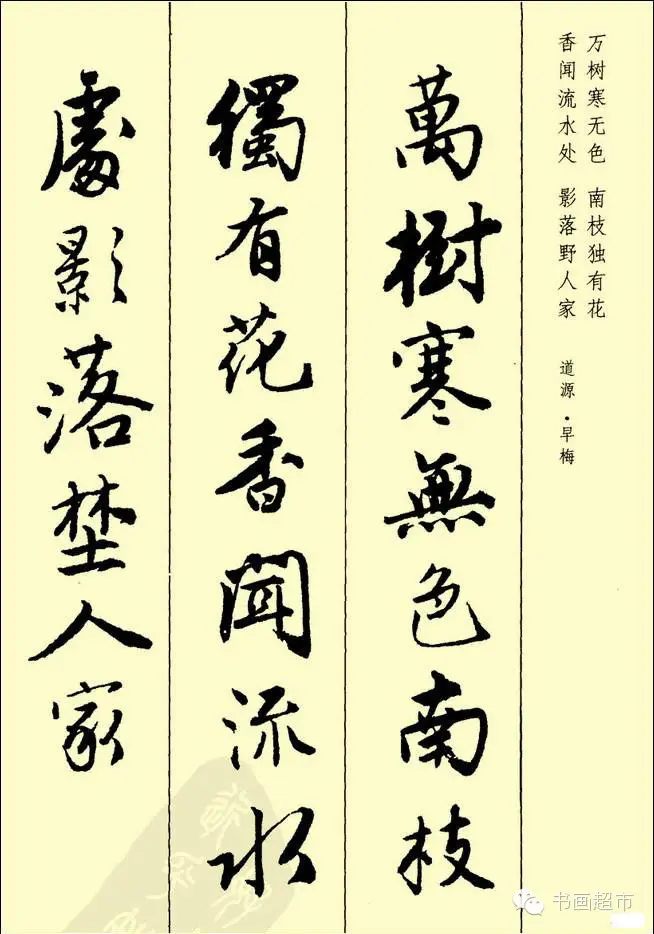 万树寒无色 南枝独有花
香闻流水处 影落野人家
道源·早梅
萬樹寒無色南枝
獨有花香聞流水
處影落埜人家
书画超市